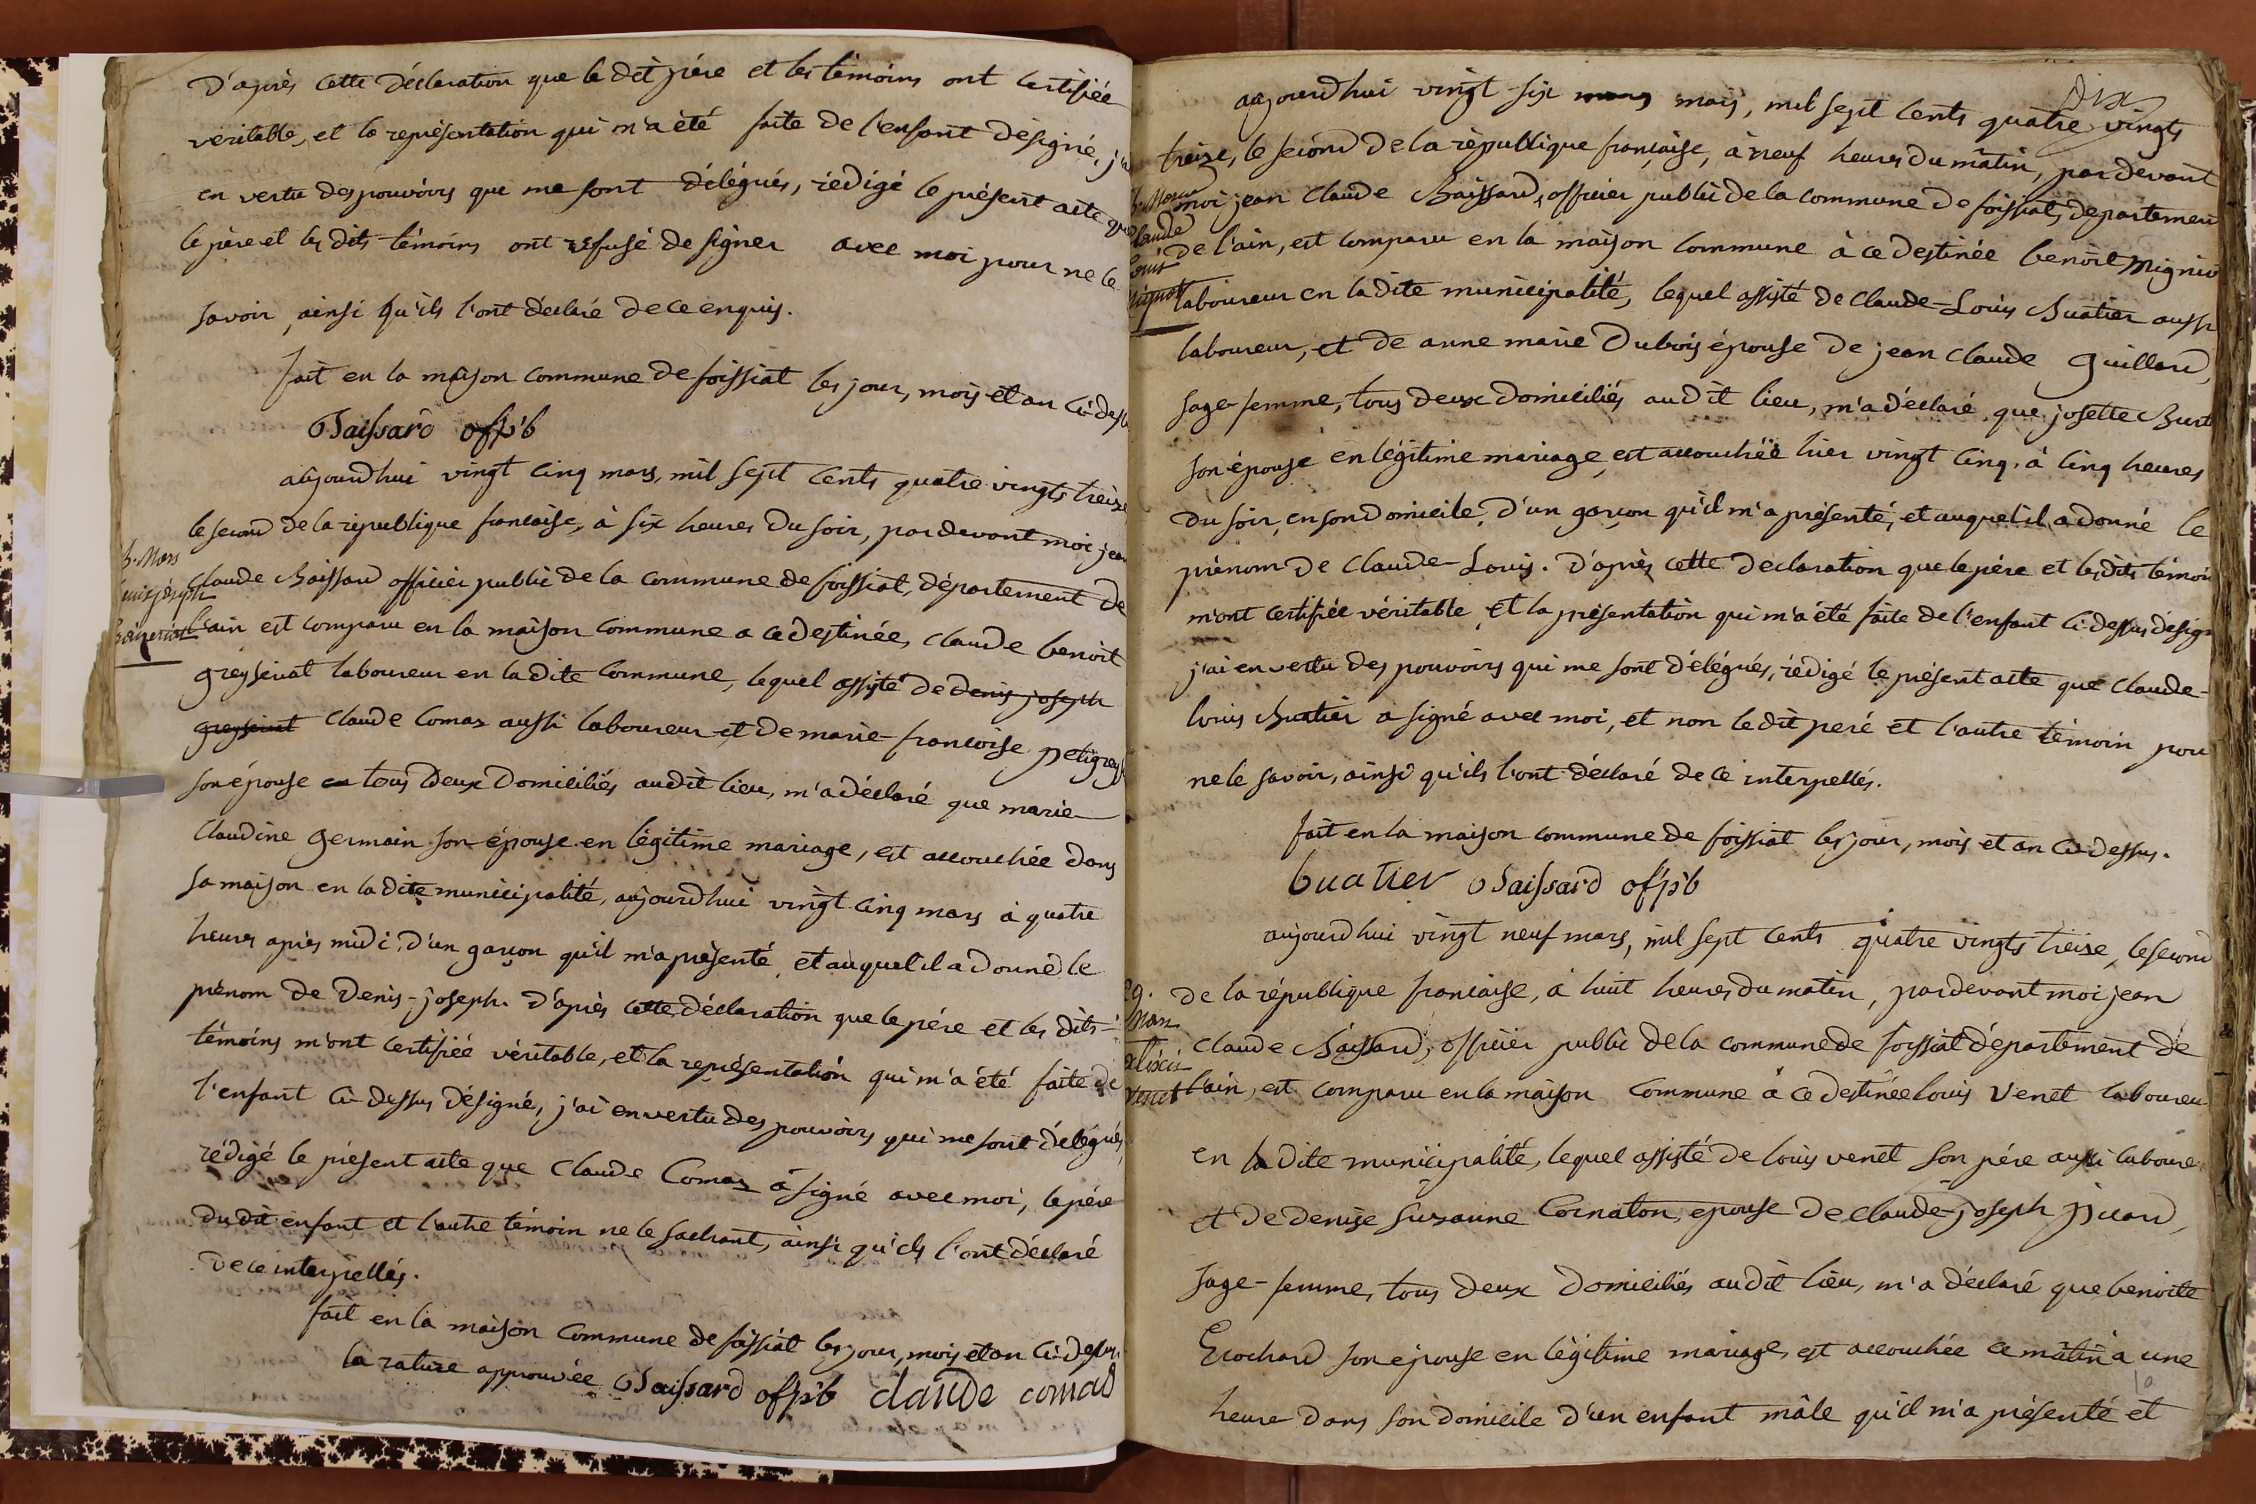 D'après cette déclaration que le dit père et les témoins ont certifiée
véritable, et la représentation qui m'a été faite de l'enfant désigné, j'ai
en vertu des pouvoirs que me sont délégués, rédigé le présent acte que
le père et les dits témoins ont refusé de signer avec moi pour ne le
savoir, ainsi qu'ils l'ont déclaré de ce enquis.
fait en la maison commune de foissiat les jour, mois et an ci-dessus
Baissard offpb
aujourdhui vingt cinq mars, mil sept cents quatre vingts treize
le second de la république francaise, à six heures du soir, pardevant moi jean
claude Baissard officier public de la commune de foissiat, département de
l'ain est comparu en la maison commune a ce destinée, claude benoit
greyserat laboureur en la dite commune, lequel assisté de denis joseph
greyserat claude Comas aussi laboureur et de marie francoise petigrey
son épouse tous deux domiciliés audit lieu, m'a déclaré que marie
Claudine germain son épouse en légitime mariage, est accouchée dans
sa maison en la dite municipalité, aujourdhui vingt cinq mars à quatre
heures après midi, d'un garçon qu'il m'a présenté, et auquel il a donné le
prénom de Denis-joseph. D'après cette déclaration que le père et les dits
témoins m'ont certifiée véritable, et la représentation qui m'a été faite de
l'enfant ci-dessus désigné, j'ai en vertu des pouvoirs qui me sont délégués,
rédigé le présent acte que Claude Comas a signé avec moi, le père
du dit enfant et l'autre témoin ne le sachant, ainsi qu'ils l'ont déclaré
de ce interpellés.
fait en la maison commune de foissiat les jour, mois et an ci-dessus.
la rature approuvée Baissard offpb claude comas
dix
aujourdhui vingt six mars, mil sept cents quatre vingts
treize, le second de la république française, à neuf heures du matin, pardevant
moi jean Claude Baissard, officier public de la commune de foissiat, departement
de l'ain, est comparu en la maison commune à ce destinée benoit
laboureur en la dite municipalité, lequel assisté de claude-Louis Buatier aussi
laboureur, et de anne marie Dubois épouse de jean claude Guillard,
sage-femme, tous deux domiciliés audit lieu, m'a déclaré que josette
son épouse en légitime mariage, est accouchée hier vingt cinq, à cinq heures
du soir, en son domicile, d'un garçon qu'il m'a présenté, et auquel il a donné le
prénom de Claude-Louis. D'après cette declaration que le père et les dits témoins
m'ont certifiée véritable, et la présentation qui m'a été faite de l'enfant ci-dessus désigné
j'ai en vertu des pouvoirs qui me sont délégués, rédigé le présent acte que claude-
louis Buatier a signé avec moi, et non le dit peré et l'autre témoin pour
ne le savoir, ainsi qu'ils l'ont déclaré de ce interpellés.
fait en la maison commune de foissiat les jour, mois et an ci-dessus.
buatier Baissard offpb
aujourdhui vingt neuf mars, mil sept cents quatre vingts treize, le second
de la république francaise, à huit heures du matin, pardevant moi jean
Claude Baissard, officier public de la commune de foissiat département de
l'ain, est comparu en la maison commune à ce destinée louis Venet laboureur
en la dite municipalité, lequel assisté de louis venet son père aussi laboureur
et de denise suzanne Cornaton, epouse de claude-joseph picard,
sage-femme, tous deux domiciliés audit lieu, m'a déclaré que benoite
Erochard son épouse en légitime mariage, est accouchée ce matin à une
heure dans son domicile d'un enfant mâle qu'il m'a présenté et